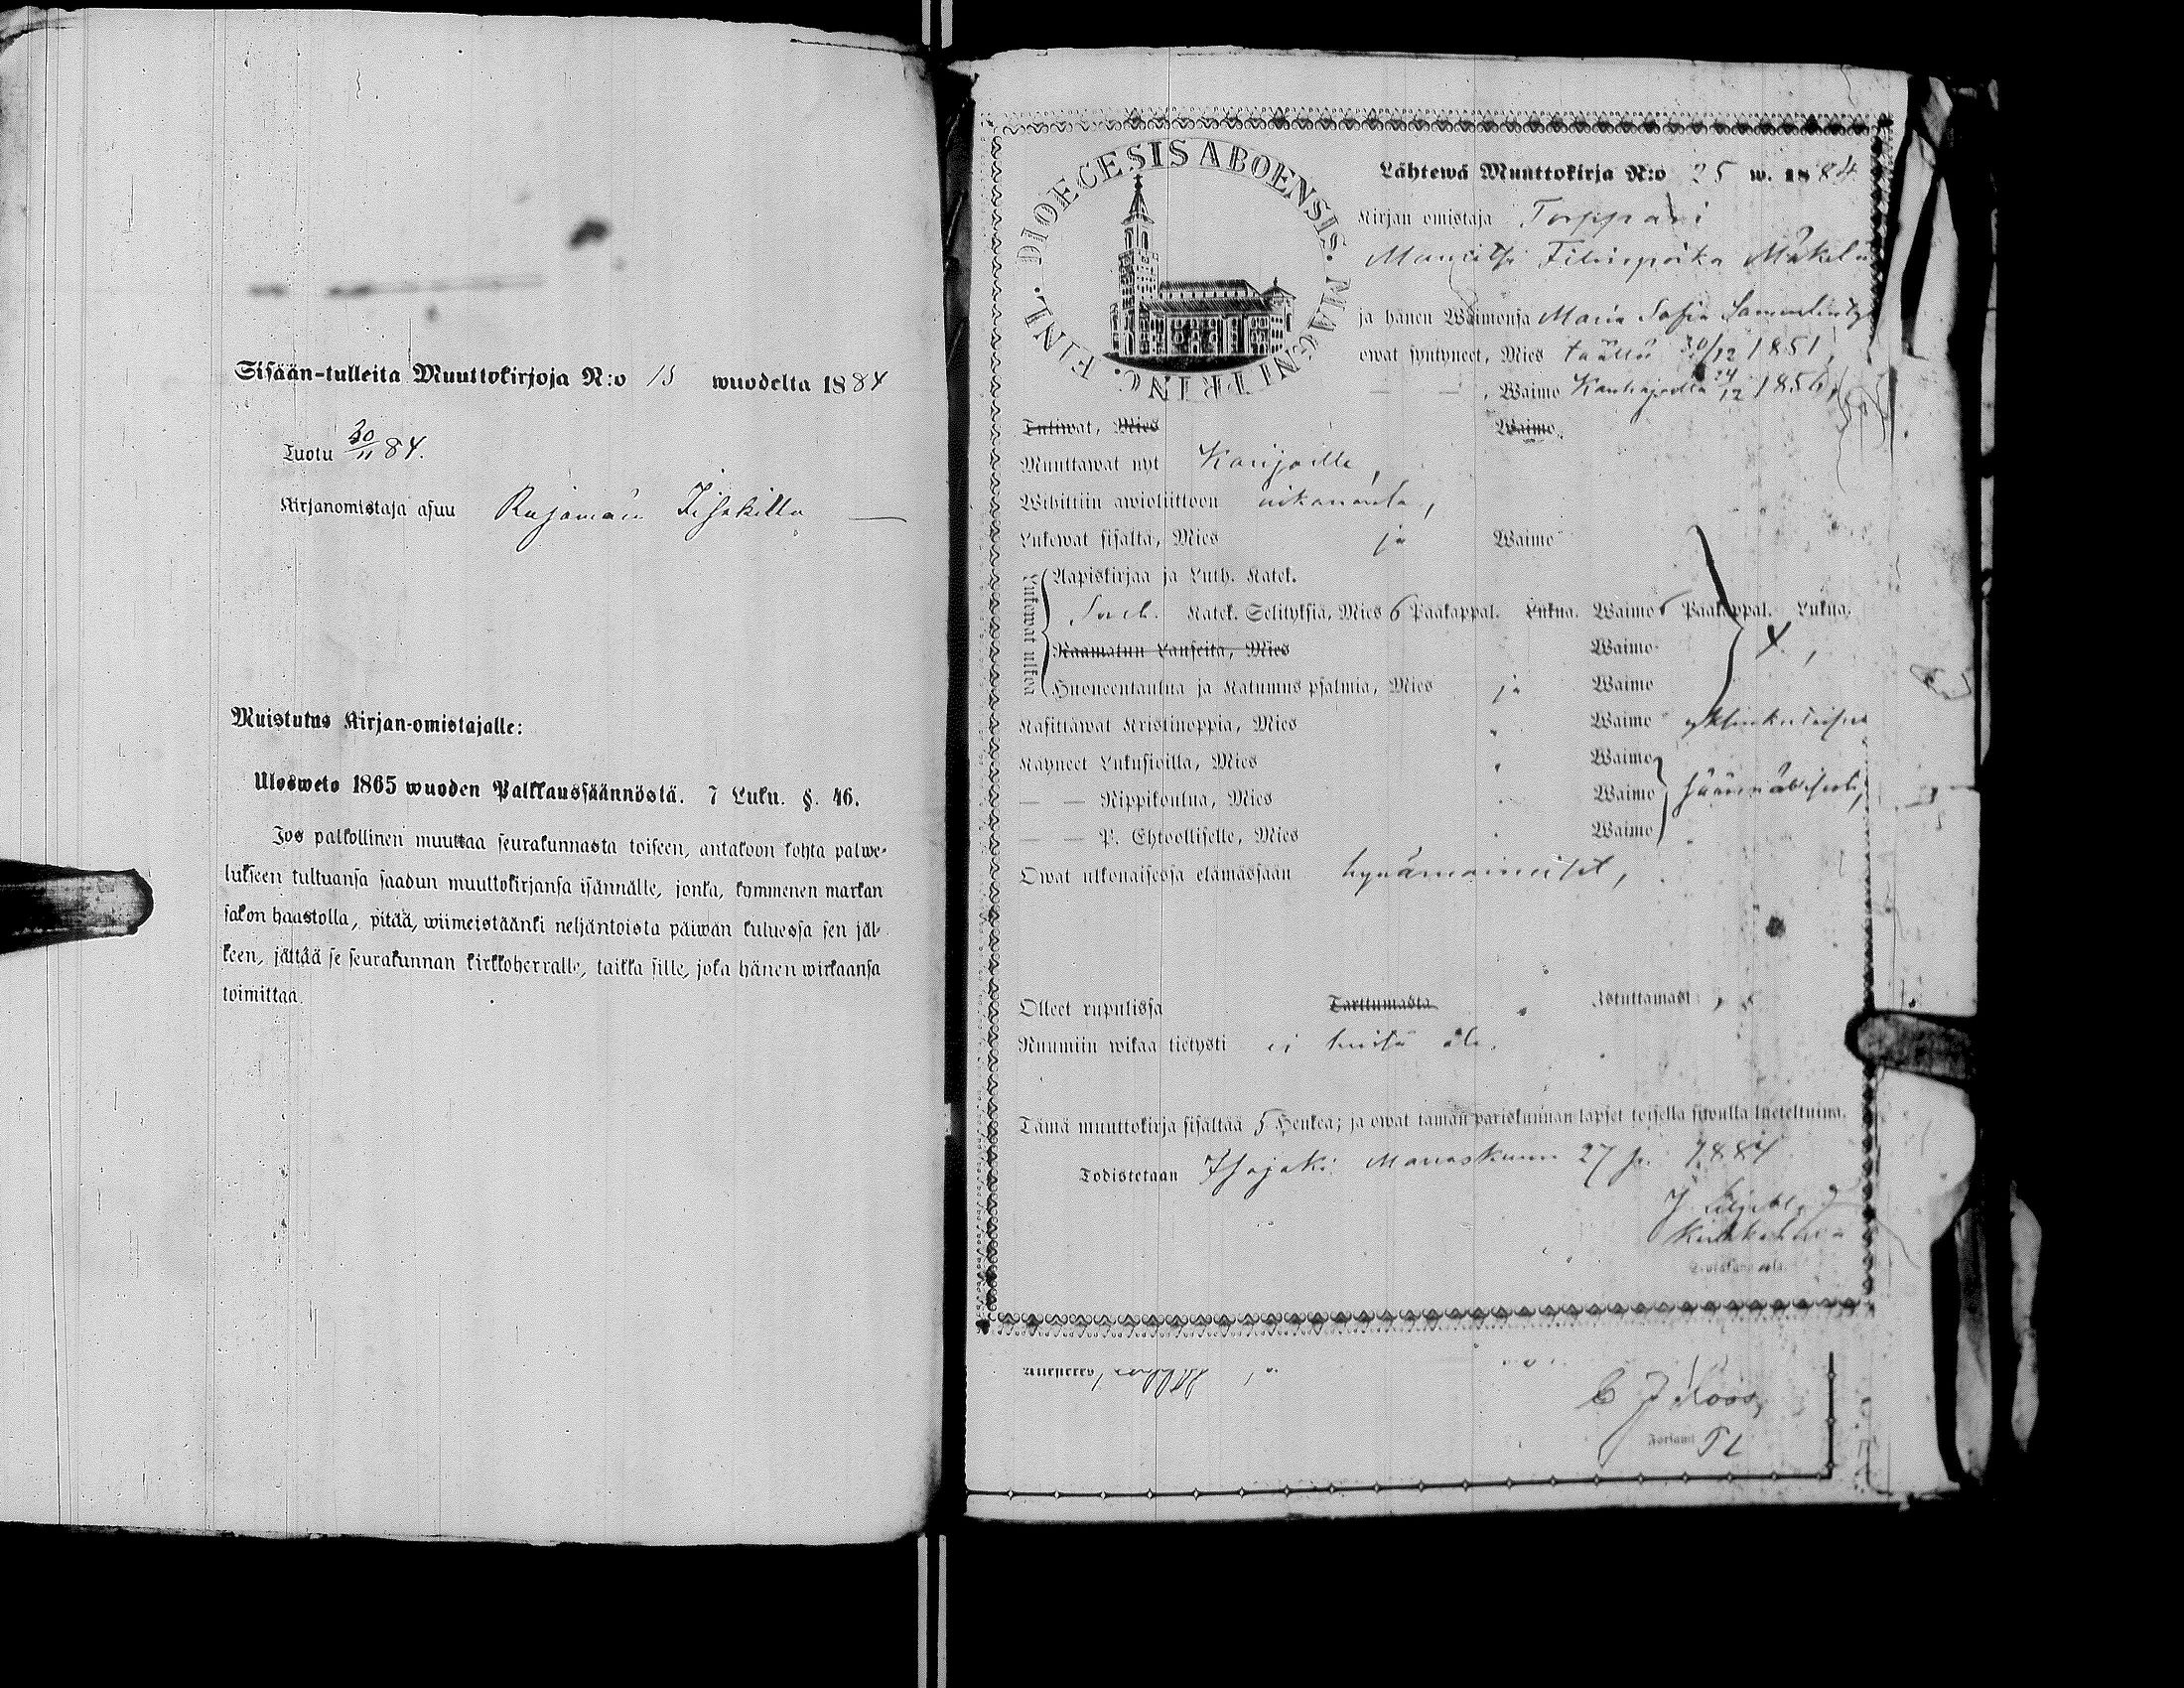 Sisään-tulleita Muuttokirjoja N:o 15 wuodelta 1884
Tuotu 30/11 84.
Kirjanomistaja asuu Rajamäen Iisakilla —
Muistutus Kirjan-omistajalle:
Ulosweto 1865 wuoden Palkkaussäännöstä. 7 Luku. §. 46.
Jos palkollinen muuttaa seurakunnasta toiseen, antakoon kohta palwe-
lukseen tultuansa saadun muuttokirjansa isännälle, jonka, kymmenen markan
sakon haastolla, pitää, wiimeistäänki neljäntoista päiwän kuluessa sen jäl-
keen, jättää se seurakunnan kirkkoherralle, taikka sille, joka hänen wirkaansa
toimittaa.
DIOECESIS ABOENSIS. MAGNI PRINC. FINL.
Lähtewä Muuttokirja N:o 25 w. 1884.
Kirjan omistaja Torppari
Mäkelä
ja hänen Waimonsa Maria Sofia
owat syntyneet, Mies täällä 30/12 1851,
— — , Waimo Kauhajoella 24/12 1856,
Tuliwat, Mies Waimo
Muuttawat nyt Karijoelle,
Wihittiin awioliittoon aikananta,
Lukewat sisältä, Mies ja Waimo
Lukewat ulkoa
Aapiskirjaa ja Luth. Katek.
Katek. Selityksiä, Mies 6 Pääkappal. Lukua. Waimo 6 Pääkappal. Lukua.
Raamatun Lauseita, Mies Waimo
Huoneentaulua ja Katumus psalmia, Mies ja Waimo
Käsittäwät Kristinoppia, Mies " Waimo
Käyneet Lukusioilla, Mies " Waimo
— — Rippikoulua, Mies " Waimo
— — P. Ehtoolliselle, Mies " Waimo
Owat ulkonaisessa elämässään hywämaineiset,
Olleet rupulissa Tarttumasta Istuttamasta
Ruumiin wikaa tietysti ei
Tämä muuttokirja sisältää 5 Henkeä; ja owat tämän pariskunnan lapset toisella siwulla lueteltuina.
Todistetaan Isojoki Marraskuun 27 p. 1884
C J Roos